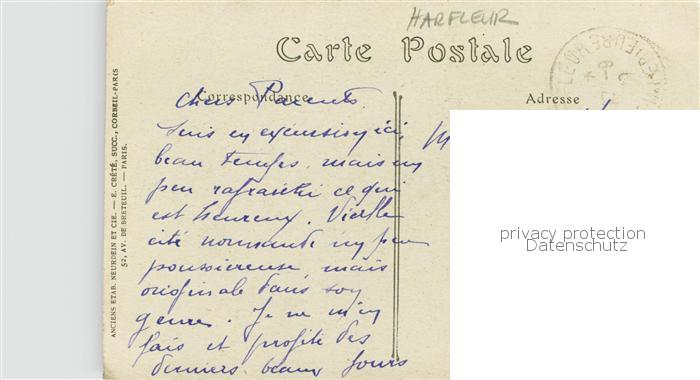 HARFLEUR
Carte Postale
Correspondance
Adresse
chers Parents.
Suis en excursion ici,
beau temps, mais un
peu rafraichi ce qui
est heureux. Vieille
cité normande un peu
poussiereuse, mais
originale dans son
genre. Je ne m'en
fais et profite des
derniers beaux jours
ANCIENS ETAB. NEURDEIN ET CIE. — E. CRÉTÉ, SUCC., CORBEIL-PARIS
52, AV. DE BRETEUIL. — PARIS.
privacy protection
Datenschutz